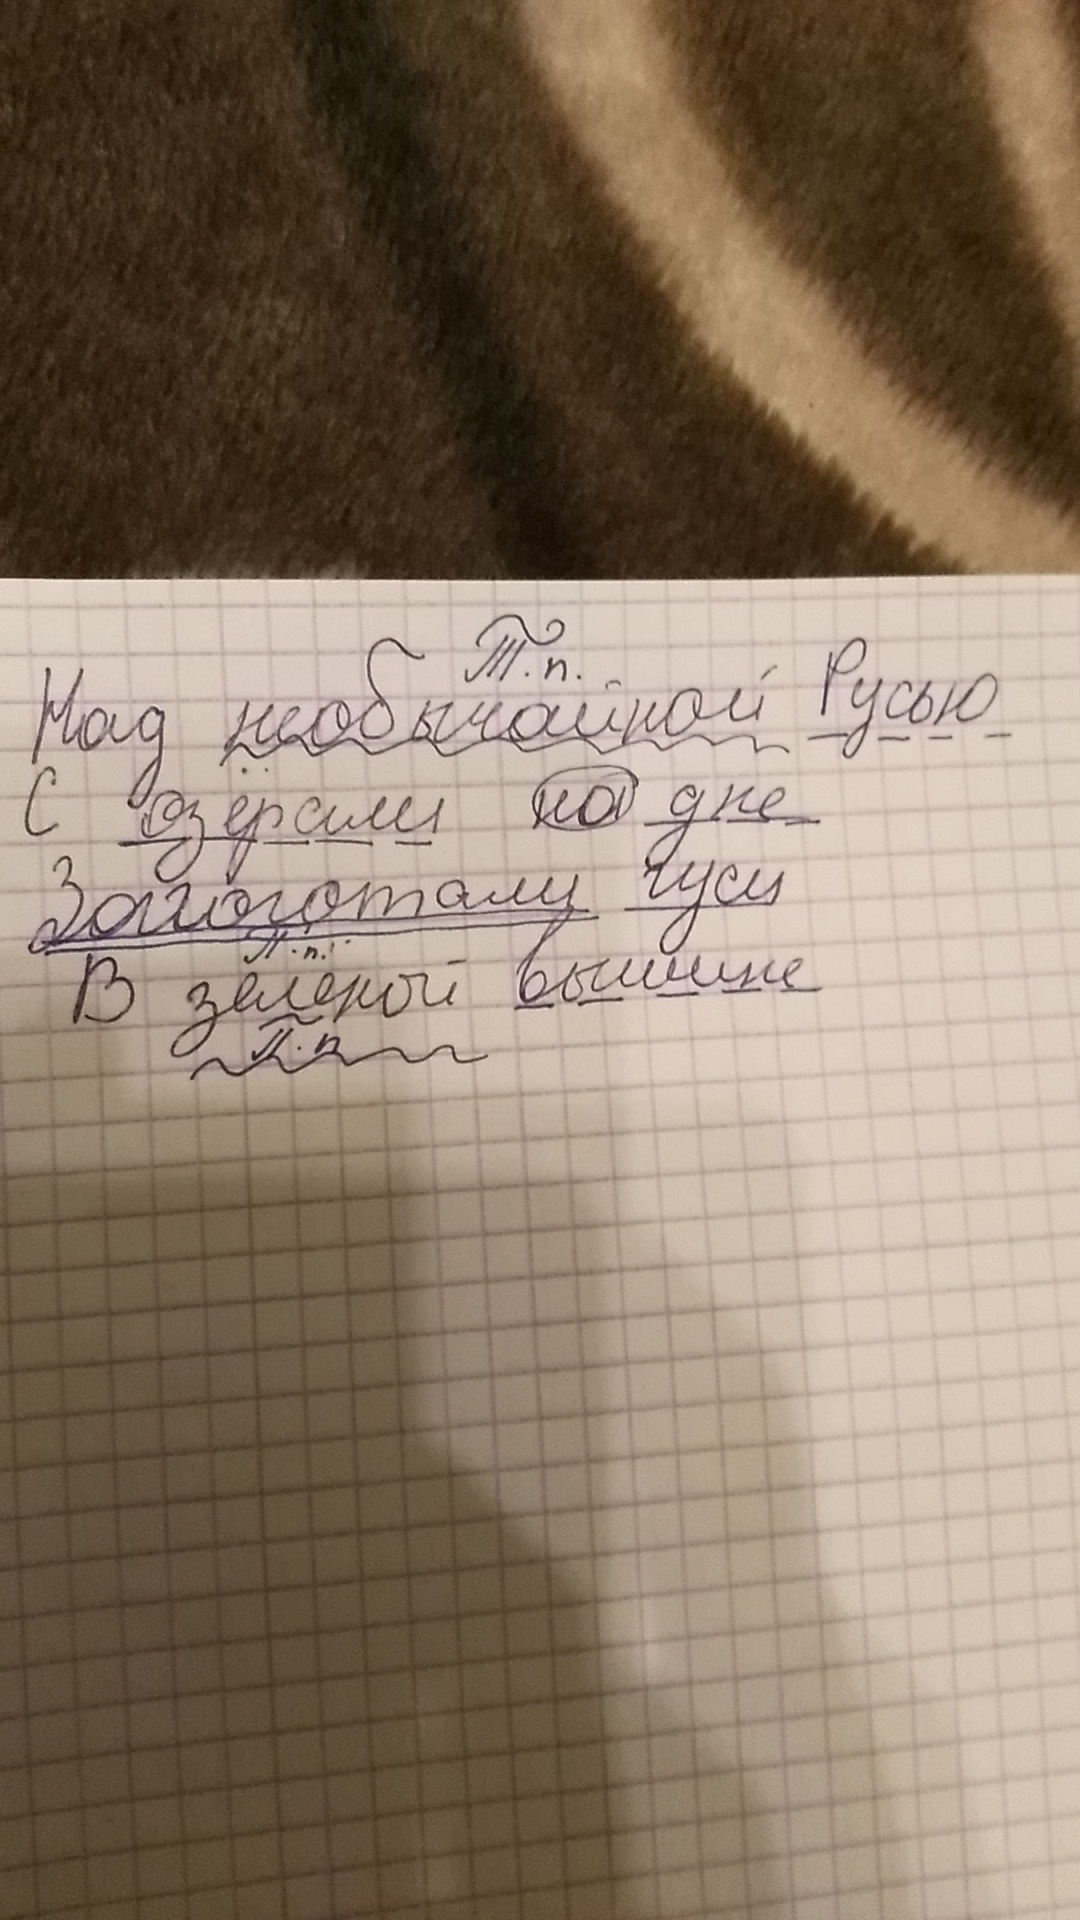 Т.п.
Над необычайной Русью
С озёрами на дне
Загоготали гуси
П.п.
В зелёной вышине
П.п.